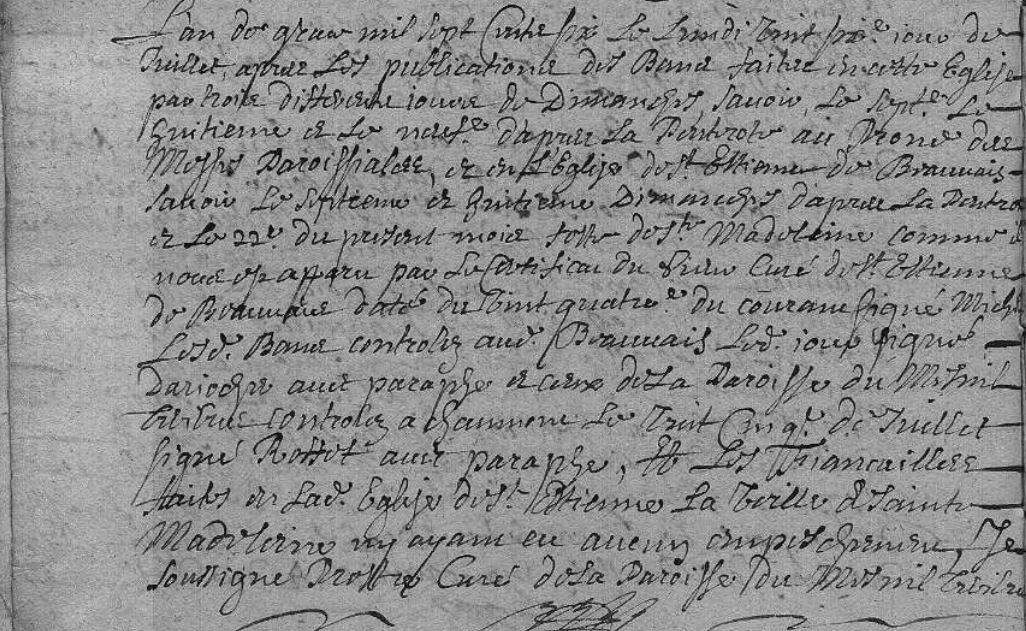 L'an de grace mil sept cents six le Lundi vint sixe jour de
Juillet, apres Les publications des Bans faites en cette Eglise
par trois differens jours de Dimanches, savoir, le septe Le
huitieme et Le neufe d'apres La Pentecote au Prone des
Messes Paroissiales, et en L'Eglise de St Estienne de Beauvais
savoir Le septieme et huitieme Dimanches d'apres La Pentec
et Le 22e du present mois feste de ste Madeleine comme il
nous est apparu par Le Certificat du sieur Curé de St Estienne
de Beauvais daté du vint quatre du courant signé Mich
Lesd. Bans controlez aud. Beauvais Led. jour signé
avec paraphe et ceux de La Paroisse du Mesnil
controlez a chaumont Le vint cinqe de Juillet
signé avec paraphe, Et Les Fiancailles
faites en Lad. Eglise de St Estienne La veille de sainte
Madeleine n'y ayant eu aucun empeschement, Je
soussigné Prestre Curé de La Paroisse du Mesnil